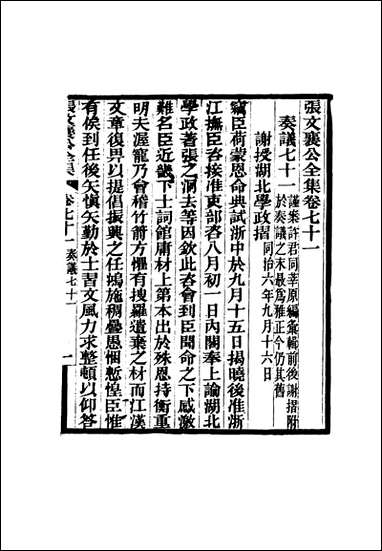 張文襄公全集卷七十一
奏議七十一
謹案許君同莘原編彙輯前後謝摺附
於奏議之末最爲雅正今仍其舊
謝授湖北學政摺
同治六年九月十六日
竊臣荷蒙恩命典試浙中於九月十五日揭曉後准浙
江撫臣咨接准吏部咨八月初一日內閣奉上諭湖北
學政著張之洞去等因欽此咨會到臣聞命之下感激
難名臣近畿下士詞館庸材上第本出於殊恩持衡重
明夫渥寵乃會稽竹箭方懼有搜羅遺棄之材而江漢
文章復畀以提倡振興之任鴻施稠疊愚悃慙惶臣惟
有候到任後矢慎矢勤於士習文風力求整頓以仰答
張文襄公全集
卷七十一 奏議七十一
一